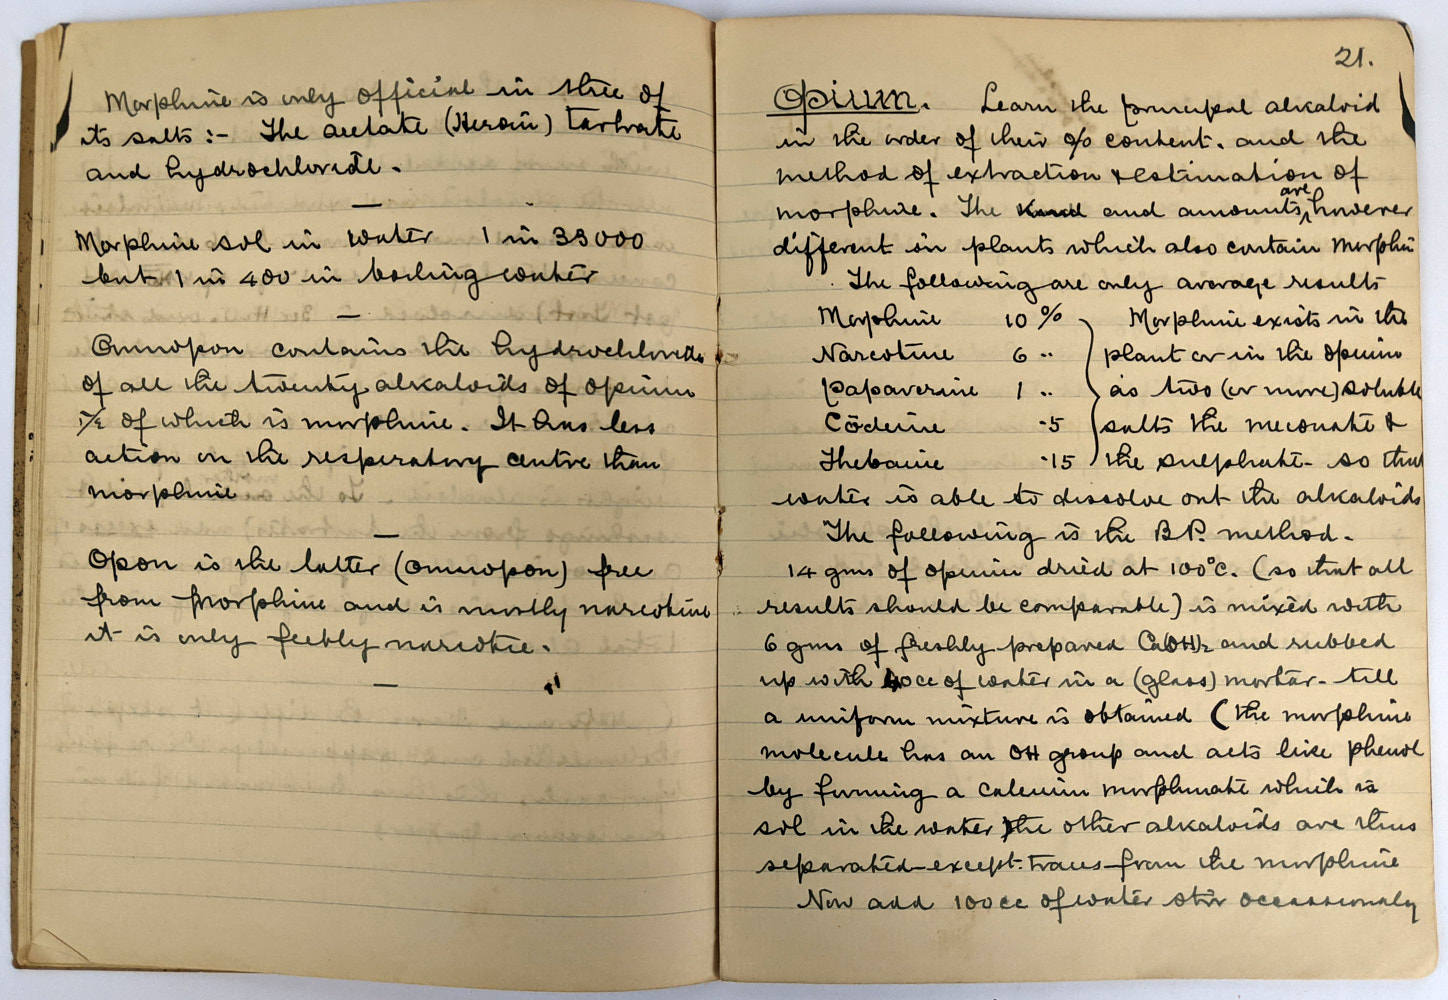 Morphine is only official in three of
its salts :- The acetate (Heroin) tartrate
and hydrochloride.
Morphine sol in water 1 in 33000
but 1 in 400 in boiling water
Omnopon contains the hydrochloride
of all the twenty alkaloids of opium
1/2 of which is morphine. It has less
action on the respiratory centre than
morphine
Opon is the latter (omnopon) free
from morphine and is mostly narcotine
it is only feebly narcotic.
21.
Opium. Learn the principal alkaloid
in the order of their % content. and the
method of extraction & estimation of
morphine. The kind and amounts are however
different in plants which also contain morphin
The following are only average results
Morphine 10 % Morphine exists in the
Narcotine 6 .. plant or in the opium
Papaverine 1 .. as two (or more) soluble
Codeine .5 salts the meconate &
Thebaine .15 the sulphate - so that
water is able to dissolve out the alkaloids
The following is the B.P. method.
14 gms of opium dried at 100°c. (so that all
results should be comparable) is mixed with
6 gms of freshly prepared Ca(OH)2 and rubbed
up with 40cc of water in a (glass) mortar - till
a uniform mixture is obtained (the morphine
molecule has an OH group and acts like phenol
by forming a calcium morphinate which is
sol in the water) the other alkaloids are thus
separated - except traces - from the morphine
Now add 100cc of water stir occassionaly